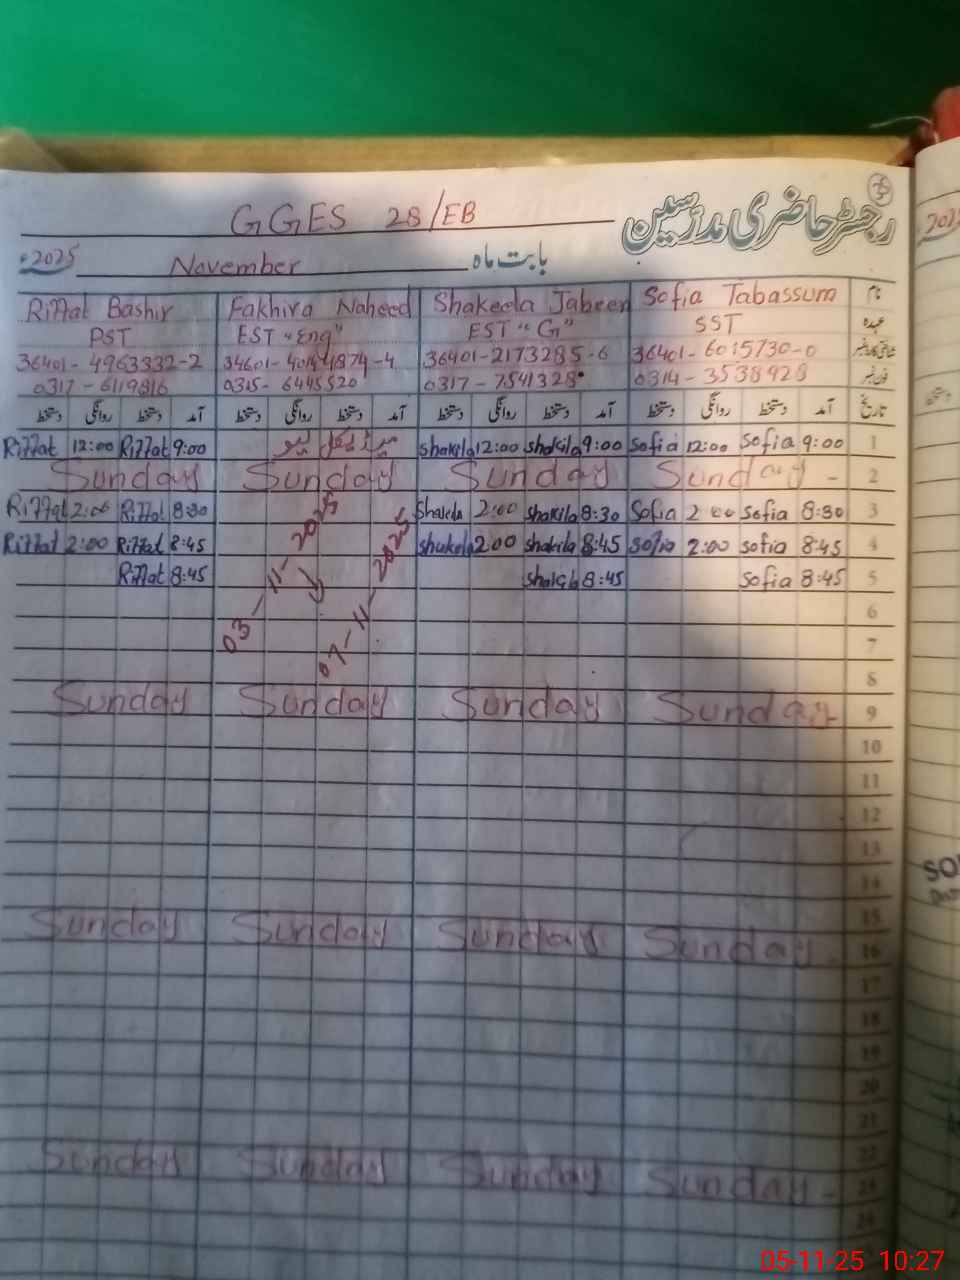 رجسٹر حاضری مدرسین
GGES 28/EB
بابت ماہ November 2025ء
نام Sofia Tabassum Shakeela Jabeen Fakhira Naheed Riffat Bashir
عہدہ SST EST "G" EST "Eng" PST
36401-6015730-0 36401-2173285-6 36401-4963332-2
فون نمبر 0314-3538928 0317-7541328 0315-6445520 0317-6119816
تاریخ آمد دستخط روانگی دستخط آمد دستخط روانگی دستخط آمد دستخط روانگی دستخط آمد دستخط روانگی دستخط
1 9:00 Sofia 12:00 Sofia 9:00 Shakila 12:00 Shakila میڈیکل لیو 9:00 Riffat 12:00 Riffat
2 Sunday Sunday Sunday Sunday
3 8:30 Sofia 2:00 Sofia 8:30 Shakila 2:00 Shakela 8:30 Riffat 2:00 Riffat
4 8:45 Sofia 2:00 Sofia 8:45 Shakila 2:00 Shakela 8:45 Riffat 2:00 Riffat
5 8:45 Sofia 8:45 Shakila 8:45 Riffat
03-11-2025
07-11-2025
6
7
8
9 Sunday Sunday Sunday Sunday
10
11
12
13
14
15
16 Sunday Sunday Sunday Sunday
17
18
19
20
21
22
23 Sunday Sunday Sunday Sunday
24
SO
05-11-25 10:27